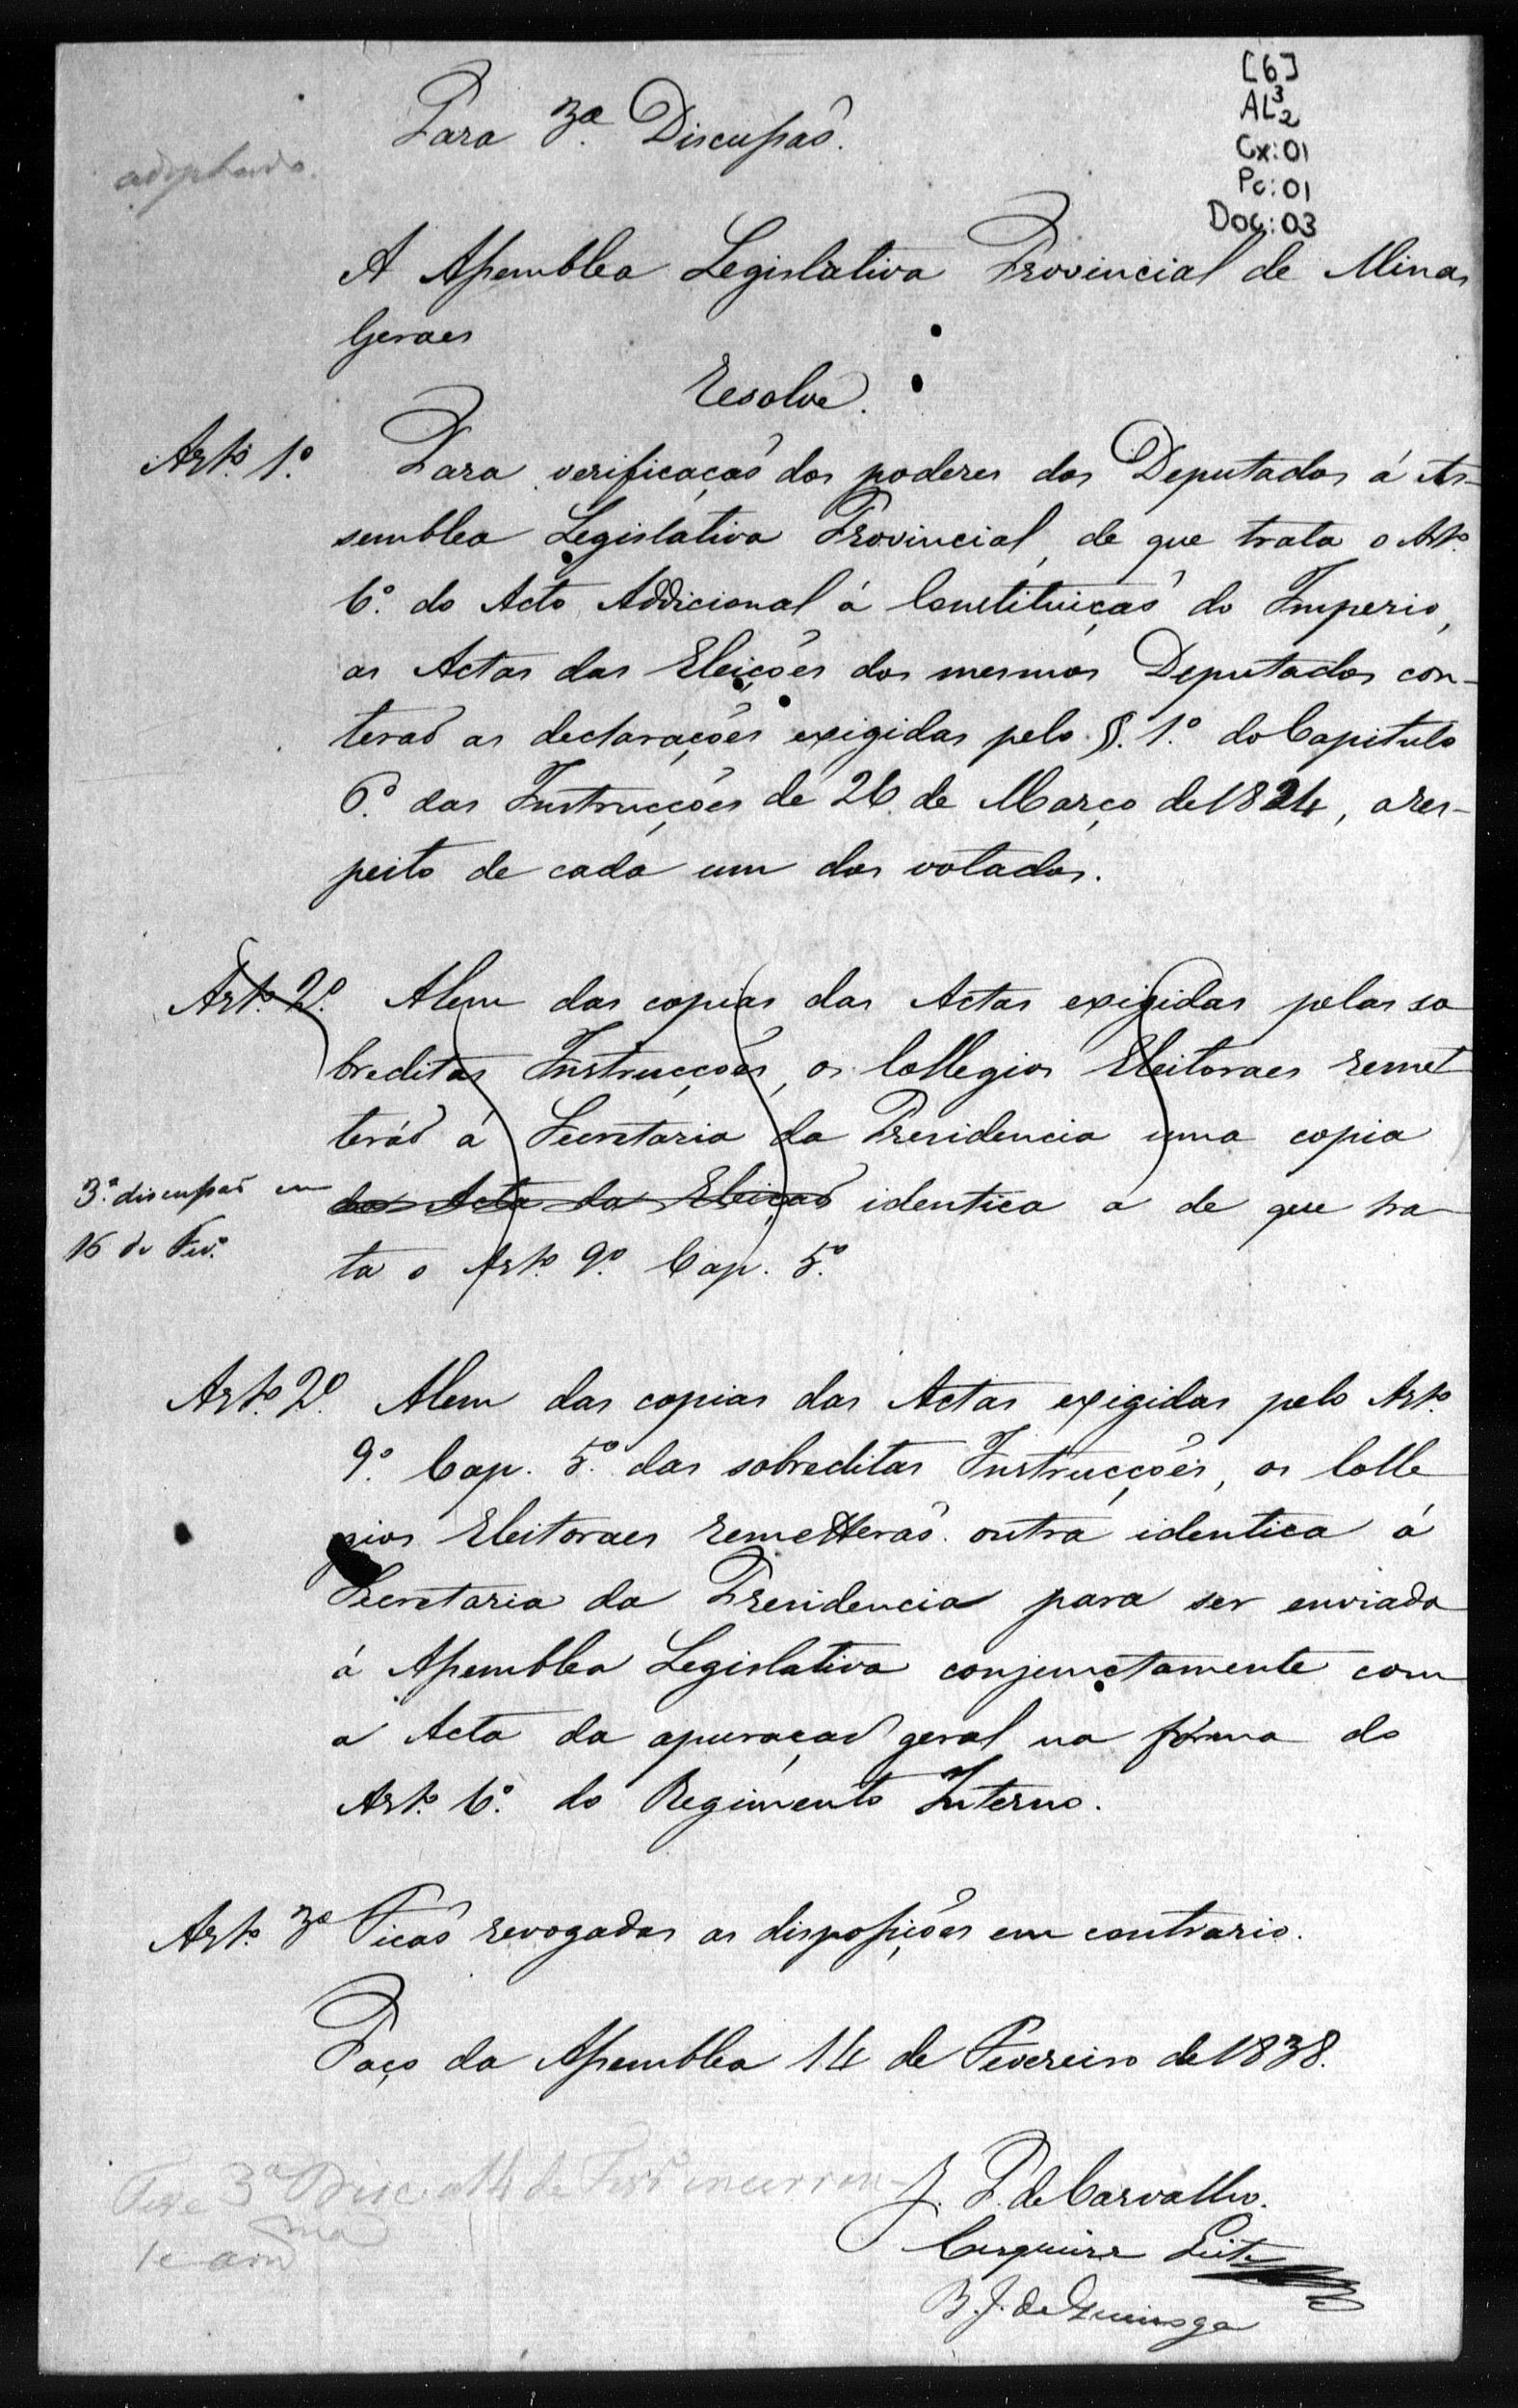 [6]
AL³2
Cx: 01
Pc: 01
Doc: 03
Para 3ª Discussaõ.
adoptado.
A Assemblea Legislativa Provincial de Minas
Geraes
Resolve.
Art.º 1.º Para verificaçaõ dos poderes dos Deputados á As-
semblea Legislativa Provincial, de que trata o Art.º
6.º do Acto Addicional á Constituiçaõ do Imperio,
as Actas das Eleições dos mesmos Deputados con-
teraõ as declarações exigidas pelo §. 1.º do Capitulo
6.º das Instrucções de 26 de Março de 1824, a res-
peito de cada um dos votados.
Art.º 2.º Alem das copias das Actas exigidas pelas so
breditas Instrucções, os Collegios Eleitoraes remet
teráõ á Secretaria da Presidencia uma copia
da Acta da Eleiçaõ identica a de que tra
ta o Art.º 9.º Cap. 5.º
3.ª discussaõ em
16 de Fev.º
Art.º 2.º Alem das copias das Actas exigidas pelo Art.º
9.º Cap. 5.º das sobreditas Instrucções, os Colle
gios Eleitoraes remetteraõ outra identica á
Secretaria da Presidencia para ser enviada
á Assemblea Legislativa conjunctamente com
a Acta da apuraçaõ geral na fórma do
Art.º 6.º do Regimento Interno.
Art.º 3º Ficaõ revogadas as disposições em contrario.
Paço da Assemblea 14 de Fevereiro de 1838.
Teve 3ª Disc. a 14 de Fevrº
J. P. de Carvalho.
Cerqueira Leite
B. J. de